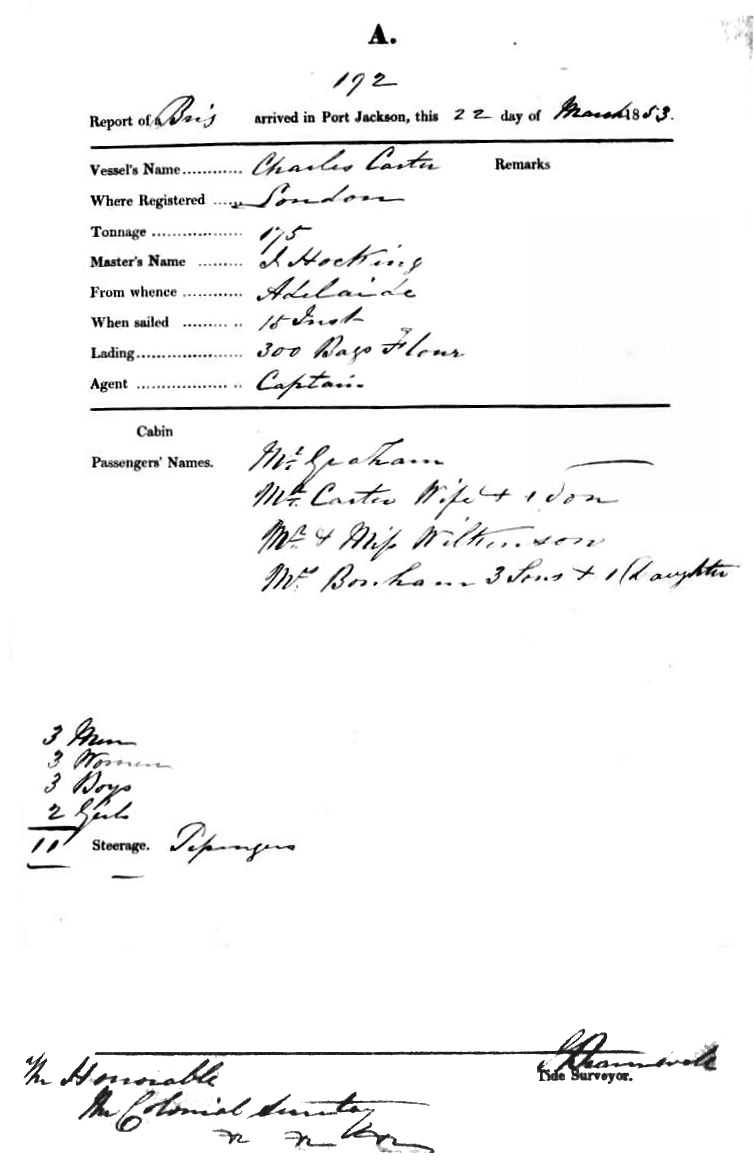 A.
192
Report of a Brig arrived in Port Jackson, this 22 day of March 1853.
Vessel's Name............ Charles Carter Remarks
Where Registered ...... London
Tonnage .................. 175
Master's Name ......... J Hocking
From whence ............ Adelaide
When sailed ......... .. 15 Inst
Lading..................... 300 Bags Flour
Agent .................. .. Captain
Cabin
Passengers' Names. Mr. Graham
Mr. Carter Wife & 1 Son
Mr. & Miss Wilkinson
Mrs. Bonham 3 Sons & 1 daughter
3 Men
3 Women
3 Boys
2 Girls
11 Steerage. Pasengers
Tide Surveyor.
The Honorable
The Colonial Secretary